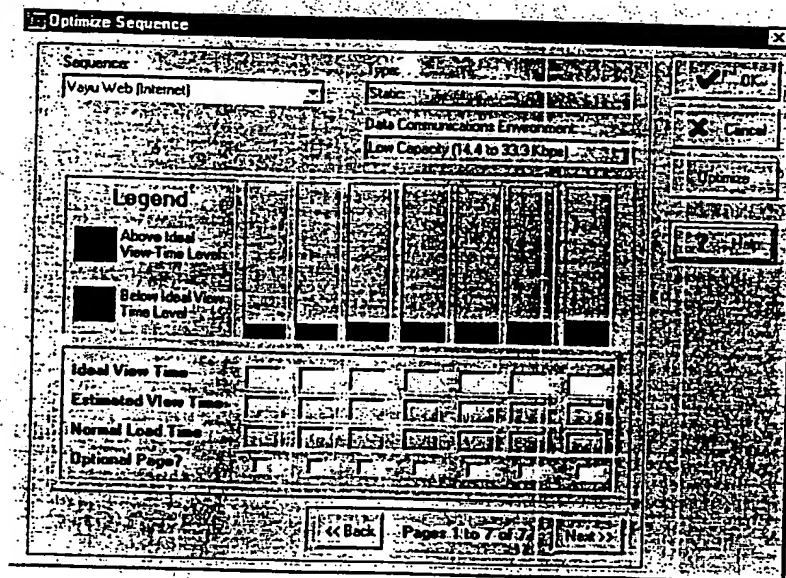 Optimize Sequence
Sequence:
Vayu Web (Internet)
Type:
Static
Data Communications Environment:
Low Capacity (14.4 to 33.3 Kbps)
OK
Cancel
Optimize
Help
Legend
Above Ideal
View-Time Level
Below Ideal View-
Time Level
Ideal View Time
Estimated View Time
Normal Load Time
Optional Page?
<< Back
Pages 1 to 7 of 7
Next >>